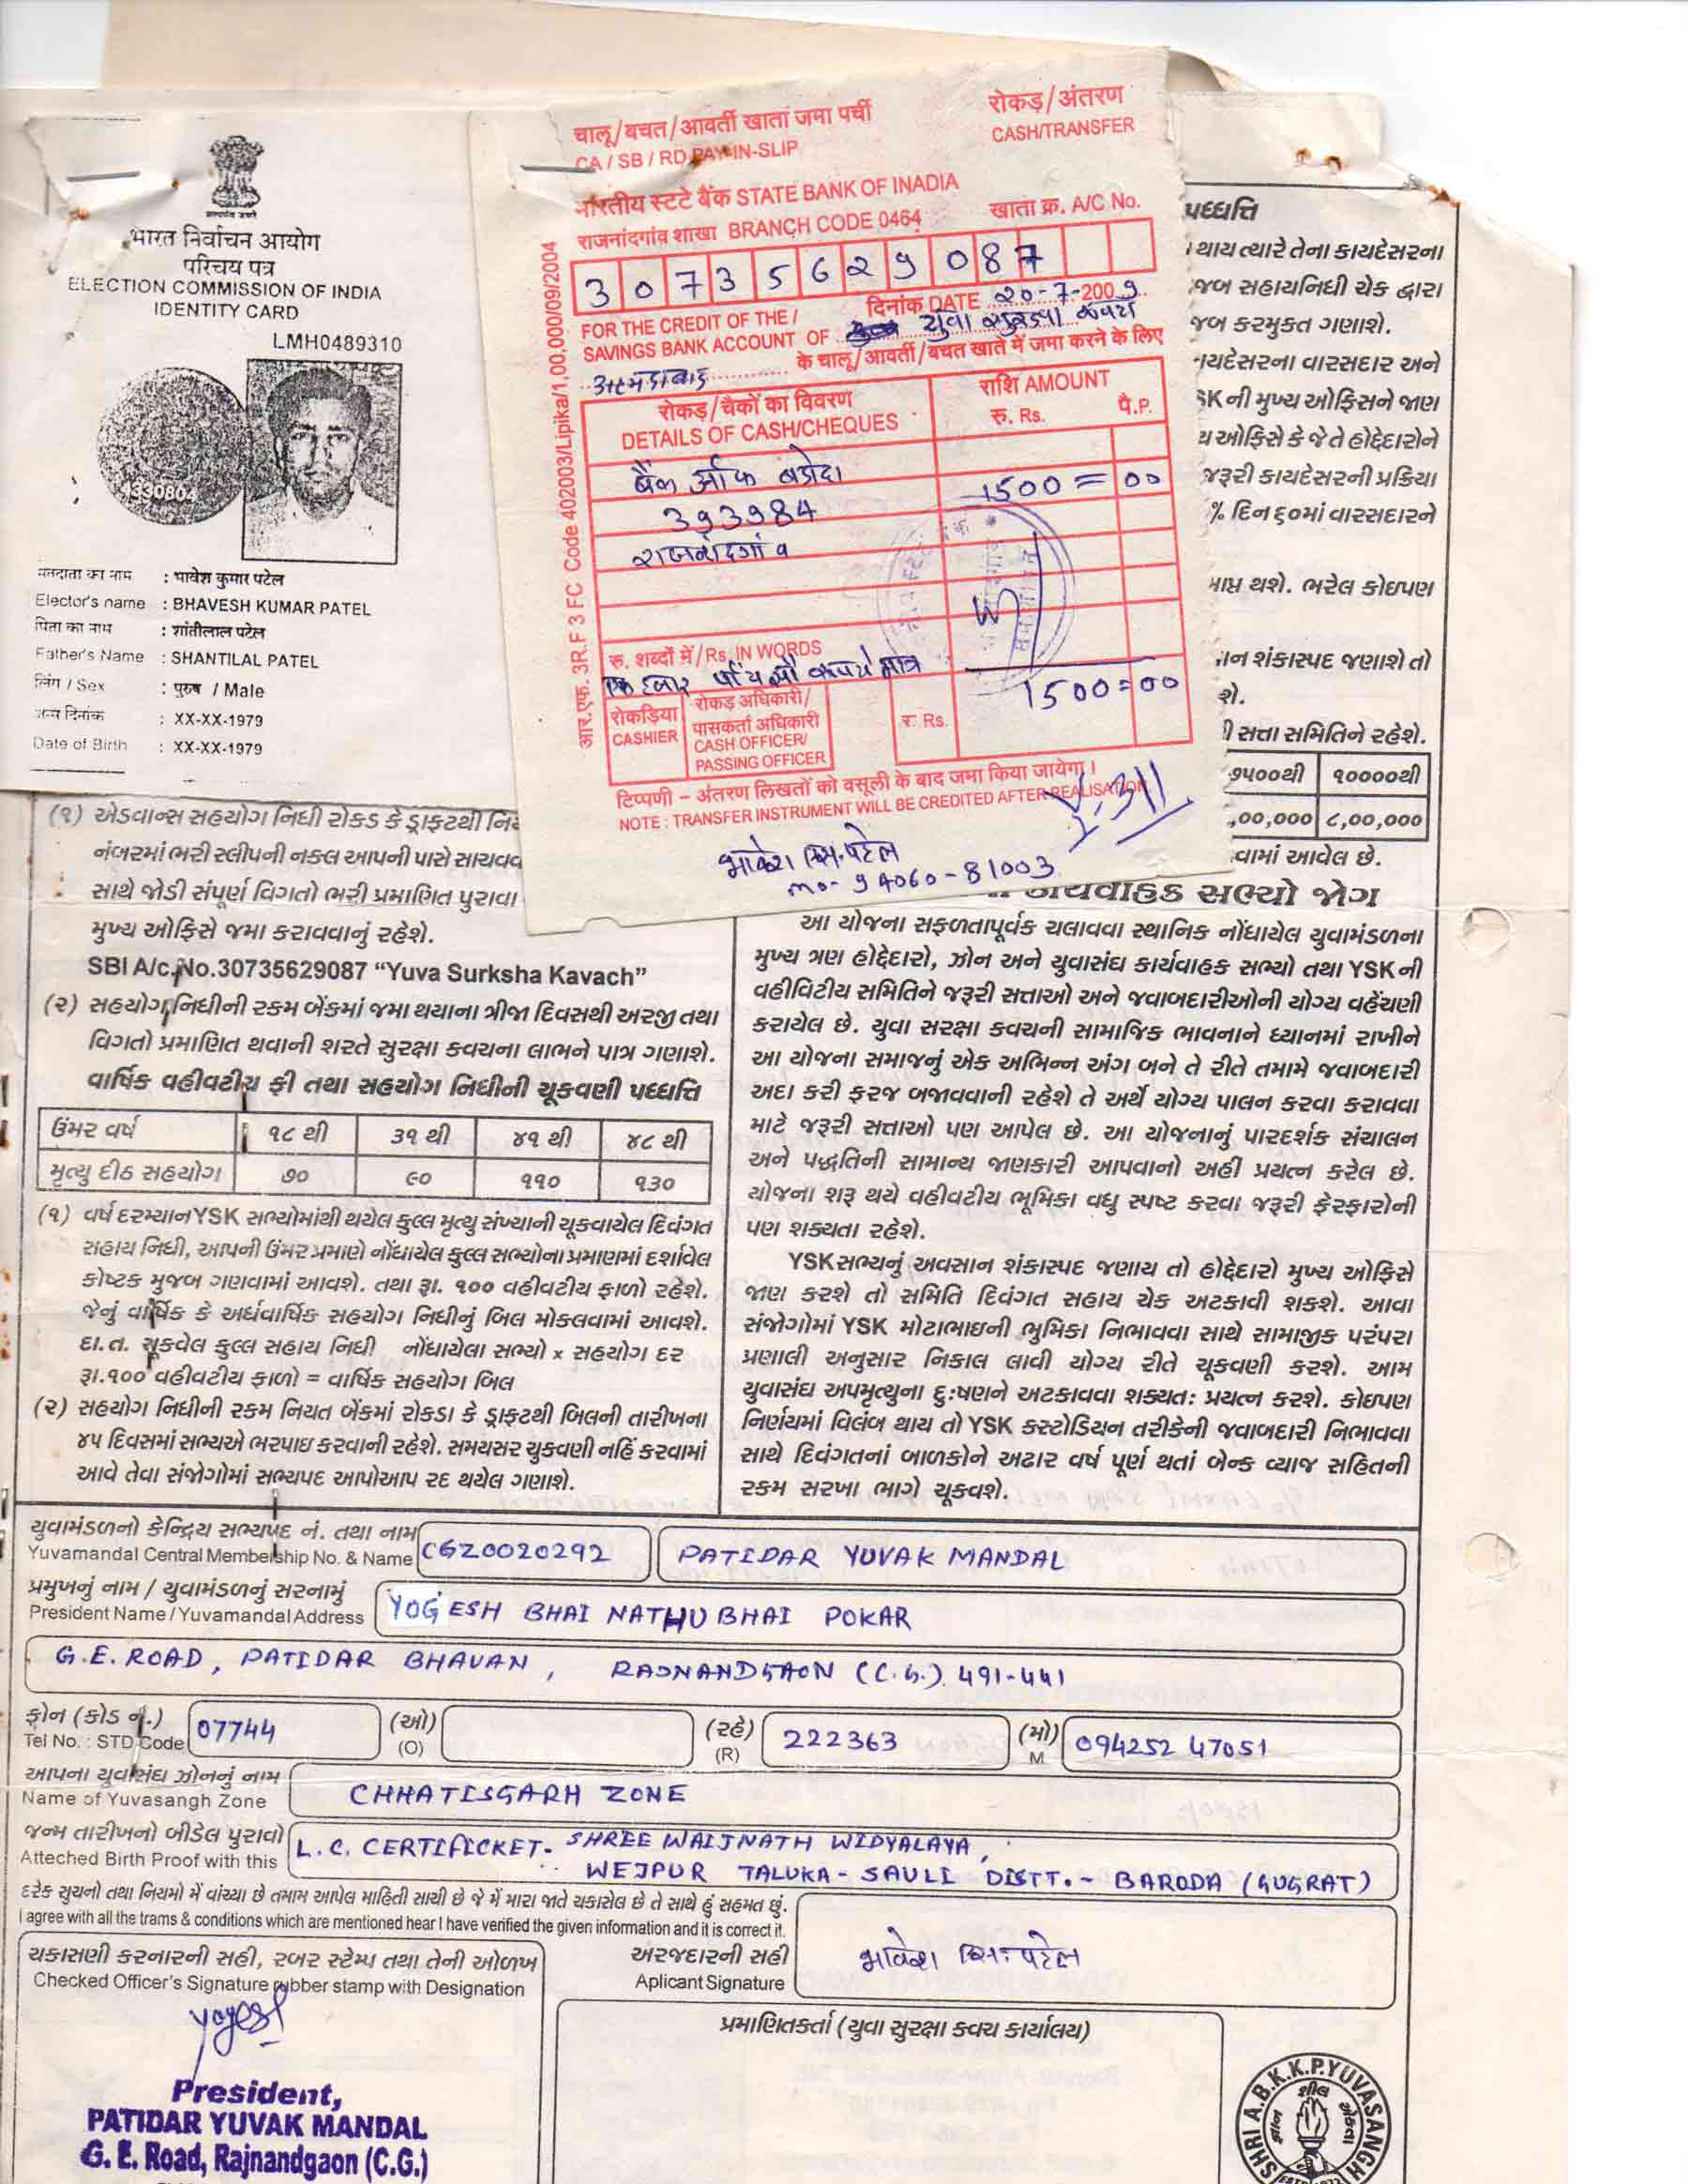 सत्यमेव जयते
भारत निर्वाचन आयोग
परिचय पत्र
ELECTION COMMISSION OF INDIA
IDENTITY CARD
LMH0489310
330804
मतदाता का नाम : भावेश कुमार पटेल
Elector's name : BHAVESH KUMAR PATEL
पिता का नाम : शांतीलाल पटेल
Father's Name : SHANTILAL PATEL
लिंग / Sex : पुरुष / Male
जन्म दिनांक : XX-XX-1979
Date of Birth : XX-XX-1979
चालू/बचत/आवर्ती खाता जमा पर्ची रोकड़/अंतरण
CA / SB / RD PAY-IN-SLIP CASH/TRANSFER
भारतीय स्टटे बैंक STATE BANK OF INADIA
राजनांदगांव शाखा BRANCH CODE 0464 खाता क्र. A/C No.
30735629087
दिनांक DATE 20-7-2009
FOR THE CREDIT OF THE /
SAVINGS BANK ACCOUNT OF युवा सुरक्षा कवच
अहमदाबाद के चालू/आवर्ती/बचत खाते में जमा करने के लिए
रोकड़/चैकों का विवरण राशि AMOUNT
DETAILS OF CASH/CHEQUES रु. Rs. पै.P.
बैंक ऑफ बडोदा 1500=00
393984
राजनांदगांव
रु. शब्दों में/Rs. IN WORDS
एक हजार पाँच सौ रूपये मात्र
1500=00
रोकड़िया रोकड़ अधिकारी/ रु. Rs.
CASHIER पासकर्ता अधिकारी
CASH OFFICER/
PASSING OFFICER
टिप्पणी – अंतरण लिखतों को वसूली के बाद जमा किया जायेगा।
NOTE : TRANSFER INSTRUMENT WILL BE CREDITED AFTER REALISATION
भावेश एस. पटेल
mo- 94060-81003
आर.एफ. 3R.F 3 FC Code 402003/Lipika/1,00,000/09/2004
પધ્ધત્તિ
થાય ત્યારે તેના કાયદેસરના
જબ સહાયનિધી ચેક દ્વારા
જબ કરમુક્ત ગણાશે.
વારસદાર અને
SK ની મુખ્ય ઓફિસને જાણ
ય ઓફિસે કે જે તે હોદ્દેદારોને
જરૂરી કાયદેસરની પ્રક્રિયા
% દિન ૬૦માં વારસદારને
થશે. ભરેલ કોઇપણ
શંકાસ્પદ જણાશે તો
શે.
ી સત્તા સમિતિને રહેશે.
૭૫૦૦થી ૧૦૦૦૦થી
,૦૦,૦૦૦ ૮,૦૦,૦૦૦
વામાં આવેલ છે.
(૧) એડવાન્સ સહયોગ નિધી રોકડ કે ડ્રાફટથી
નંબરમાં ભરી સ્લીપની નકલ આપની પાસે
સાથે જોડી સંપૂર્ણ વિગતો ભરી પ્રમાણિત પુરાવા
મુખ્ય ઓફિસે જમા કરાવવાનું રહેશે.
SBI A/c.No.30735629087 “Yuva Surksha Kavach”
(૨) સહયોગ નિધીની રકમ બેંકમાં જમા થયાના ત્રીજા દિવસથી અરજી તથા
વિગતો પ્રમાણિત થવાની શરતે સુરક્ષા કવચના લાભને પાત્ર ગણાશે.
વાર્ષિક વહીવટીય ફી તથા સહયોગ નિધીની ચૂકવણી પધ્ધતિ
ઉંમર વર્ષ ૧૮ થી ૩૧ થી ૪૧ થી ૪૮ થી
મૃત્યુ દીઠ સહયોગ ૭૦ ૯૦ ૧૧૦ ૧૩૦
(૧) વર્ષ દરમ્યાન YSK સભ્યોમાંથી થયેલ કુલ્લ મૃત્યુ સંખ્યાની ચૂકવાયેલ દિવંગત
સહાય નિધી, આપની ઉંમર પ્રમાણે નોંધાયેલ કુલ્લ સભ્યોના પ્રમાણમાં દર્શાવેલ
કોષ્ટક મુજબ ગણવામાં આવશે. તથા રૂા. ૧૦૦ વહીવટીય ફાળો રહેશે.
જેનું વાર્ષિક કે અર્ધવાર્ષિક સહયોગ નિધીનું બિલ મોકલવામાં આવશે.
દા.ત. ચૂકવેલ કુલ્લ સહાય નિધી નોંધાયેલા સભ્યો x સહયોગ દર
રૂા.૧૦૦ વહીવટીય ફાળો = વાર્ષિક સહયોગ બિલ
(૨) સહયોગ નિધીની રકમ નિયત બેંકમાં રોકડા કે ડ્રાફટથી બિલની તારીખના
૪૫ દિવસમાં સભ્યએ ભરપાઇ કરવાની રહેશે. સમયસર ચુકવણી નહિં કરવામાં
આવે તેવા સંજોગોમાં સભ્યપદ આપોઆપ રદ થયેલ ગણાશે.
કાર્યવાહક સભ્યો જોગ
આ યોજના સફળતાપૂર્વક ચલાવવા સ્થાનિક નોંધાયેલ યુવામંડળના
મુખ્ય ત્રણ હોદ્દેદારો, ઝોન અને યુવાસંઘ કાર્યવાહક સભ્યો તથા YSK ની
વહીવિટીય સમિતિને જરૂરી સત્તાઓ અને જવાબદારીઓની યોગ્ય વહેંચણી
કરાયેલ છે. યુવા સરક્ષા કવચની સામાજિક ભાવનાને ધ્યાનમાં રાખીને
આ યોજના સમાજનું એક અભિન્ન અંગ બને તે રીતે તમામે જવાબદારી
અદા કરી ફરજ બજાવવાની રહેશે તે અર્થે યોગ્ય પાલન કરવા કરાવવા
માટે જરૂરી સત્તાઓ પણ આપેલ છે. આ યોજનાનું પારદર્શક સંચાલન
અને પદ્ધતિની સામાન્ય જાણકારી આપવાનો અહીં પ્રયત્ન કરેલ છે.
યોજના શરૂ થયે વહીવટીય ભૂમિકા વધુ સ્પષ્ટ કરવા જરૂરી ફેરફારોની
પણ શક્યતા રહેશે.
YSK સભ્યનું અવસાન શંકાસ્પદ જણાય તો હોદ્દેદારો મુખ્ય ઓફિસે
જાણ કરશે તો સમિતિ દિવંગત સહાય ચેક અટકાવી શકશે. આવા
સંજોગોમાં YSK મોટાભાઇની ભુમિકા નિભાવવા સાથે સામાજીક પરંપરા
પ્રણાલી અનુસાર નિકાલ લાવી યોગ્ય રીતે ચૂકવણી કરશે. આમ
યુવાસંઘ અપમૃત્યુના દુ:ષણને અટકાવવા શક્યત: પ્રયત્ન કરશે. કોઇપણ
નિર્ણયમાં વિલંબ થાય તો YSK કસ્ટોડિયન તરીકેની જવાબદારી નિભાવવા
સાથે દિવંગતનાં બાળકોને અઢાર વર્ષ પૂર્ણ થતાં બેન્ક વ્યાજ સહિતની
રકમ સરખા ભાગે ચૂકવશે.
યુવામંડળનો કેન્દ્રિય સભ્યપદ નં. તથા નામ
Yuvamandal Central Membership No. & Name CGZ0020292 PATIDAR YUVAK MANDAL
પ્રમુખનું નામ / યુવામંડળનું સરનામું
President Name / Yuvamandal Address YOGESH BHAI NATHUBHAI POKAR
G.E. ROAD, PATIDAR BHAVAN, RAJNANDGAON (C.G.) 491-441
ફોન (કોડ નં.) 07744 (ઓ) (રહે) 222363 (મો) 094252 47051
Tel No. : STD Code (O) (R) M
આપના યુવાસંઘ ઝોનનું નામ
Name of Yuvasangh Zone CHHATISGARH ZONE
જન્મ તારીખનો બીડેલ પુરાવો
Atteched Birth Proof with this L.C. CERTIFICKET- SHREE WAIJNATH WIDYALAYA,
WEJPUR TALUKA- SAULI DISTT.- BARODA (GUGRAT)
દરેક સુચનો તથા નિયમો મેં વાંચ્યા છે તમામ આપેલ માહિતી સાચી છે જે મેં મારા જાતે ચકાસેલ છે તે સાથે હું સહમત છું.
I agree with all the trams & conditions which are mentioned hear I have verified the given information and it is correct it.
ચકાસણી કરનારની સહી, રબર સ્ટેમ્પ તથા તેની ઓળખ
Checked Officer's Signature rubber stamp with Designation
અરજદારની સહી
Aplicant Signature
ભાવેશ એસ. પટેલ
yogesh
President,
PATIDAR YUVAK MANDAL
G. E. Road, Rajnandgaon (C.G.)
પ્રમાણિતકર્તા (યુવા સુરક્ષા કવચ કાર્યાલય)
SHRI A.B.K.K.P.YUVASANGH
શીલ